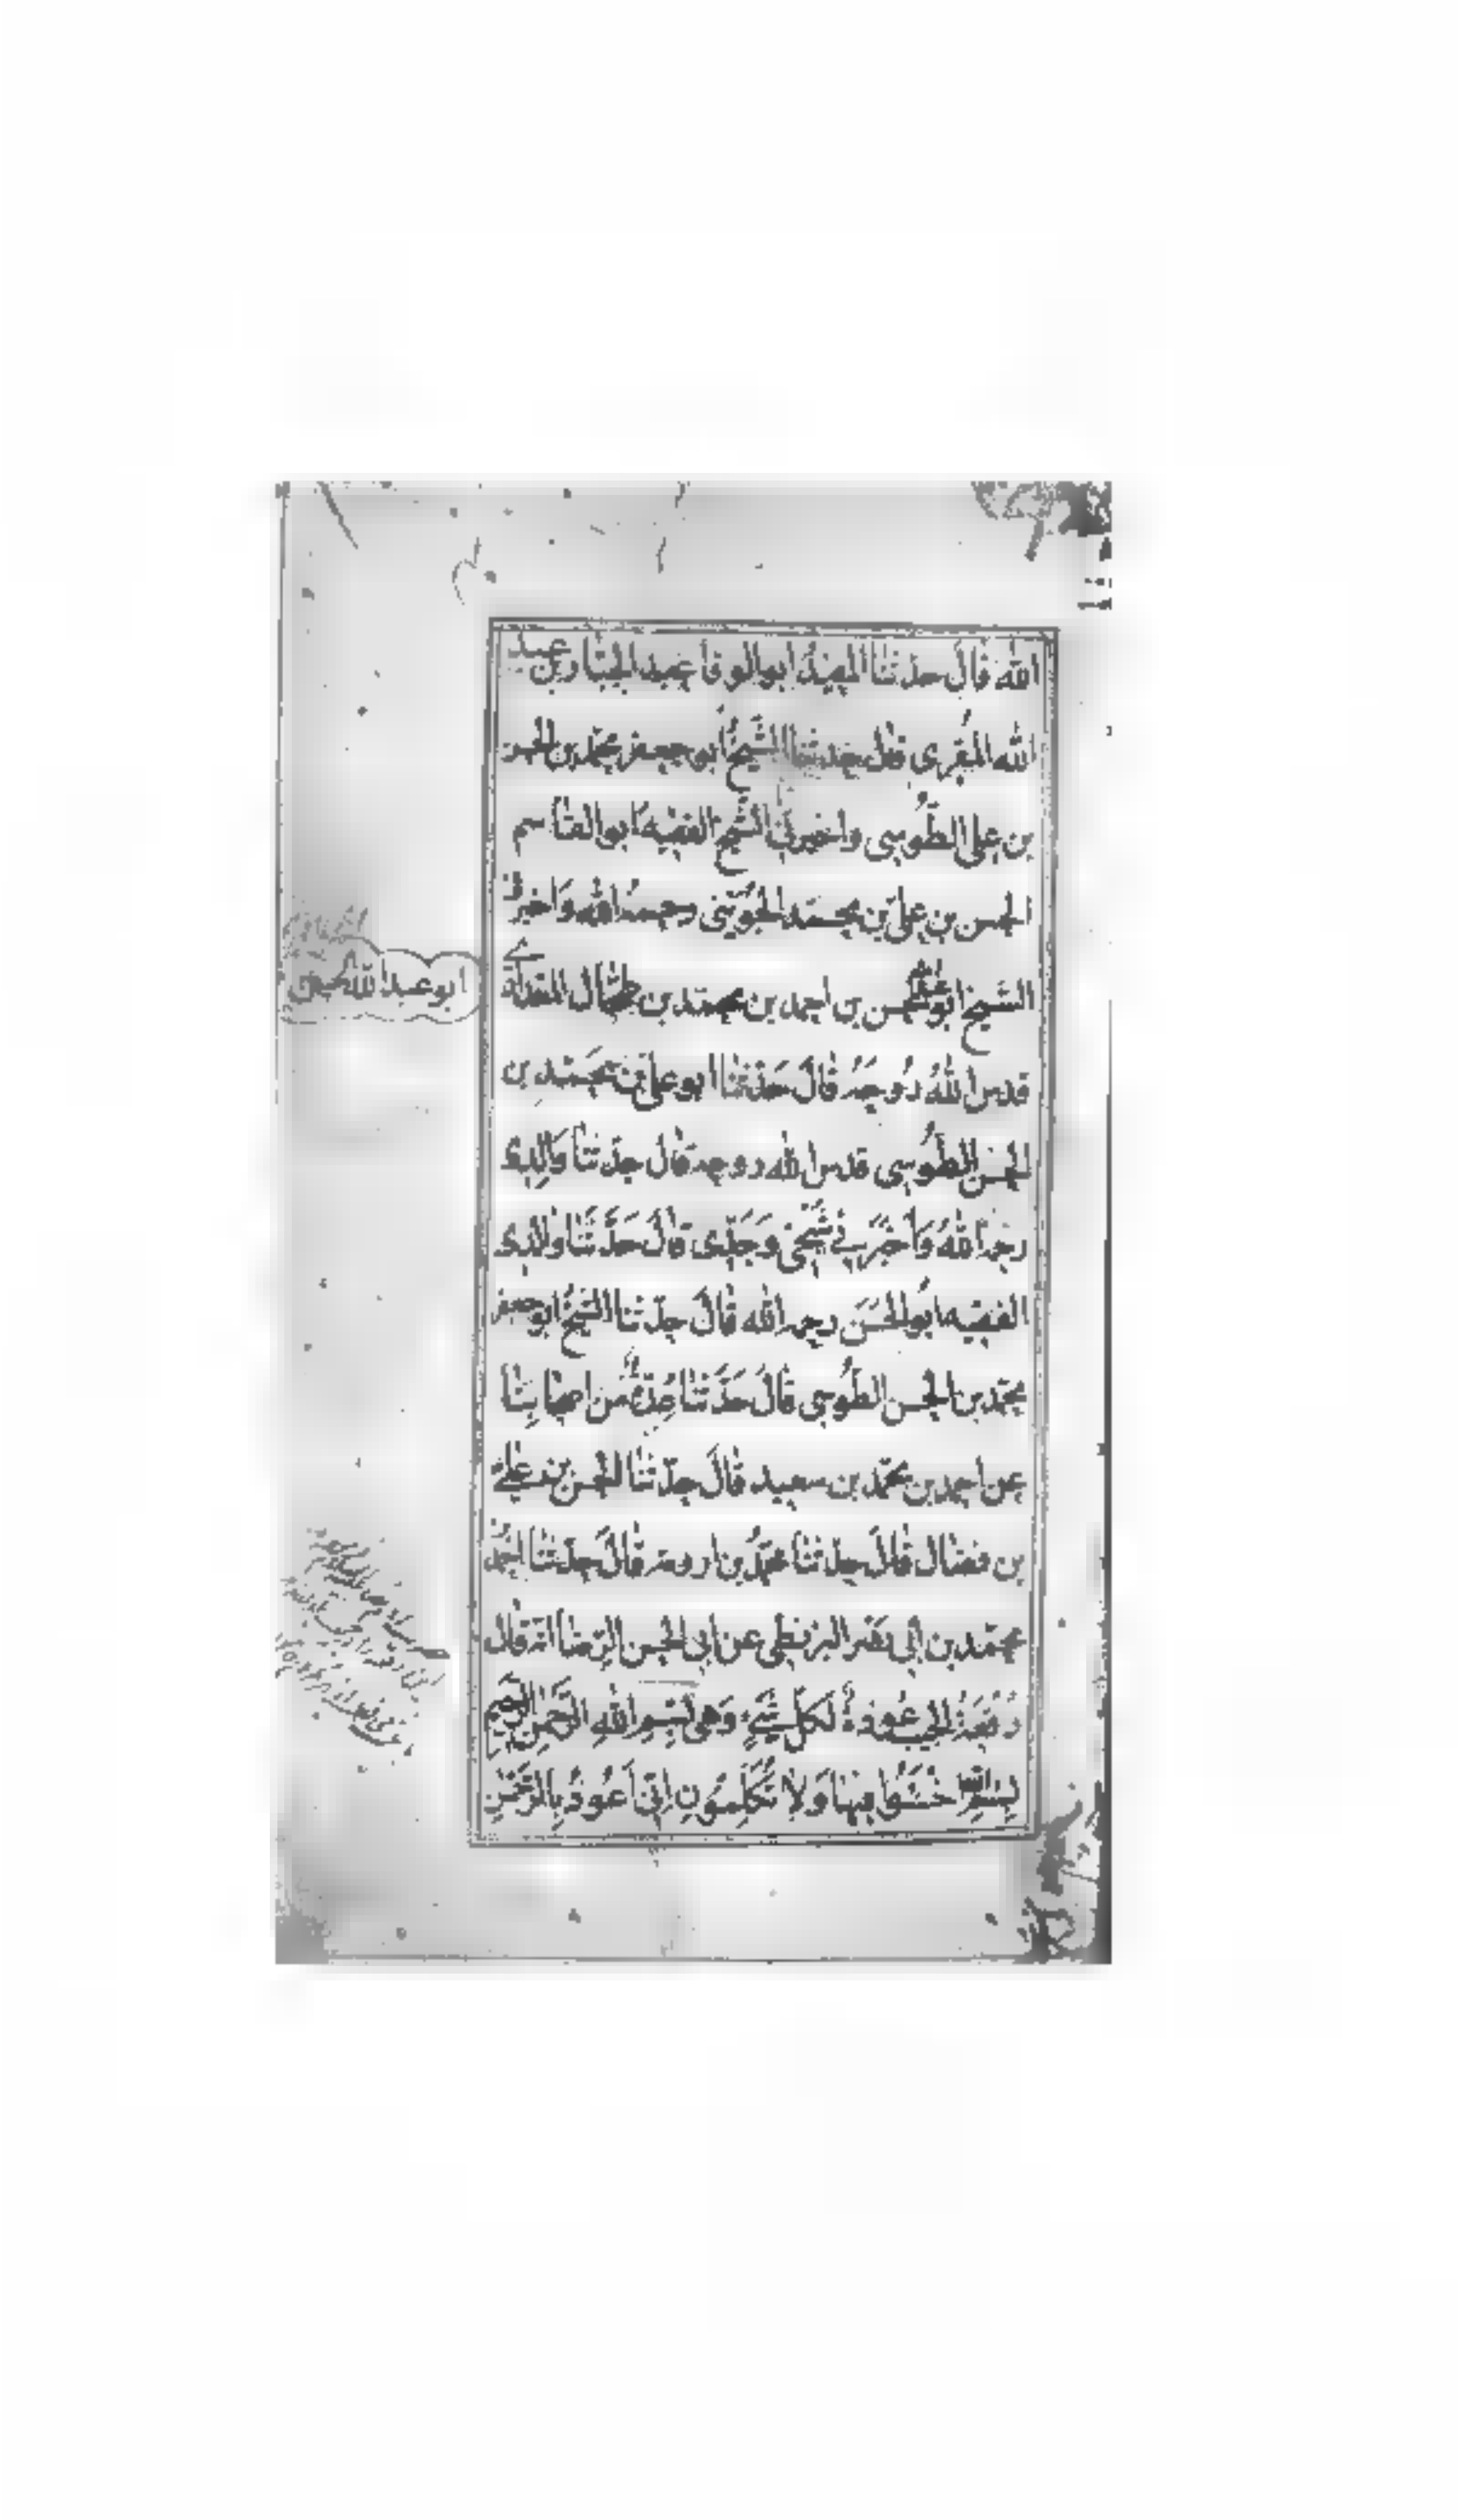 الله قال حدثنا المفيد ابوالوفا عبد الجبار بن عبد
الله المقرى قال حدثنا الشيخ ابو جعفر محمد بن الحسن
بن على الطُوسى واخبرنى الشيخ الفقيه ابوالقاسم
الحسن بن على بن محمد الجوينى رحمه الله واخبرنى
الشيخ ابو الحسن بن احمد بن محمد بن طحال المقدادى
قدس اللهُ روحَهُ قالَ حَدثنا ابو على بن محمد بن
الحسن الطُوسى قدس الله روحه قال حدّثنا وَالِدِى
رحمه اللهُ وَاخبَرنى شَيْخى وَجَدّى قالَ حَدَّثَنا والدى
الفقيه ابوالحسَن رحمه الله قالَ حدّثنا الشيخُ ابوجعفر
محمّد بن الحسن الطُوسى قالَ حَدَّثنا من اصحابنا
عن احمد بن محمّد بن سعيد قالَ حدّثنا الحسن بن على
بن فضال قالَ حدّثنا محمّد بن ارومه قالَ حدّثنا احمد
محمّد بن ابى نصر البزنطى عن ابى الحسن الرّضا انّه قال
رُقعَةُ الجيب عُوذةٌ لكلّ شَىءٍ وَهِىَ بِسْمِ اللهِ الرَّحْمنِ الرَّحيمِ
بِسْمِ اللهِ اخْسَئُوا فِيهَا وَلا تُكَلِّمُونِ اِنّى اَعُوذُ بِالرَّحْمنِ
ابو عبد الله الحسين